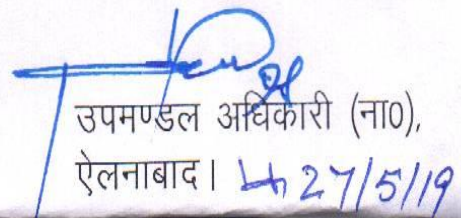 उपमण्डल अधिकारी (ना0),
ऐलनाबाद। 27/5/19